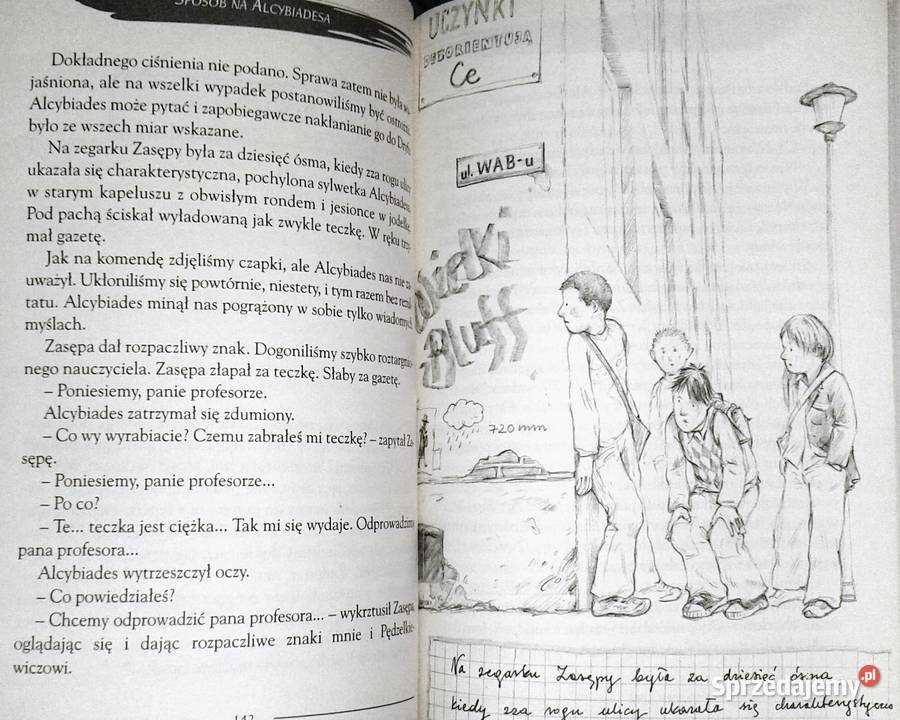 SPOSÓB NA ALCYBIADESA
Dokładnego ciśnienia nie podano. Sprawa zatem nie była wy-
jaśniona, ale na wszelki wypadek postanowiliśmy być ostrożni.
Alcybiades może pytać i zapobiegawcze nakłanianie go do Dryfu
było ze wszech miar wskazane.
Na zegarku Zasępy była za dziesięć ósma, kiedy zza rogu ulicy
ukazała się charakterystyczna, pochylona sylwetka Alcybiadesa
w starym kapeluszu z obwisłym rondem i jesionce w jodełkę.
Pod pachą ściskał wyładowaną jak zwykle teczkę. W ręku trzy-
mał gazetę.
Jak na komendę zdjęliśmy czapki, ale Alcybiades nas nie za-
uważył. Ukłoniliśmy się powtórnie, niestety, i tym razem bez rezul-
tatu. Alcybiades minął nas pogrążony w sobie tylko wiadomych
myślach.
Zasępa dał rozpaczliwy znak. Dogoniliśmy szybko roztargnio-
nego nauczyciela. Zasępa złapał za teczkę. Słaby za gazetę.
– Poniesiemy, panie profesorze.
Alcybiades zatrzymał się zdumiony.
– Co wy wyrabiacie? Czemu zabrałeś mi teczkę? – zapytał Za-
sępę.
– Poniesiemy, panie profesorze...
– Po co?
– Te... teczka jest ciężka... Tak mi się wydaje. Odprowadzimy
pana profesora...
Alcybiades wytrzeszczył oczy.
– Co powiedziałeś?
– Chcemy odprowadzić pana profesora... – wykrztusił Zasępa,
oglądając się i dając rozpaczliwe znaki mnie i Pędzelkie-
wiczowi.
UCZYNKI
DEZORIENTUJĄ
Ce
ul. WAB-u
Wielki
Bluff
720 mm
Na zegarku Zasępy była za dziesięć ósma
kiedy zza rogu ulicy ukazała się charakterystyczna
Sprzedajemy.pl